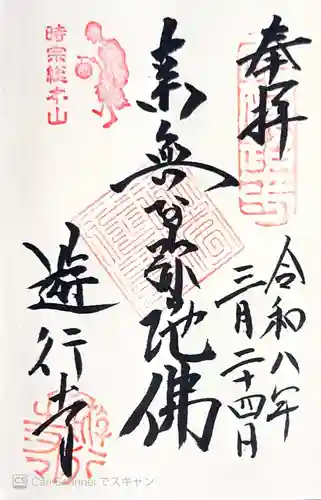 奉拝
令和八年
三月二十四日
南無阿弥陀佛
時宗総本山
遊行寺
CS CamScannerでスキャン